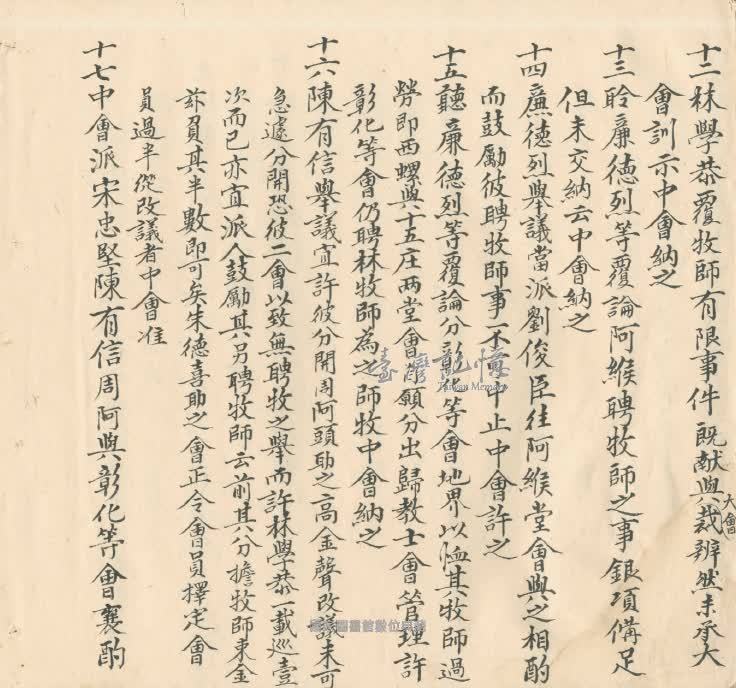 十二林學恭覆牧師有限事件既献與裁辨然未承大
大會
會訓示中會納之
十三聆廉德烈等覆論阿緱聘牧師之事銀項俻足
但未交納云中會納之
十四廉德烈舉議當派劉俊臣徃阿緱堂會與之相酌
而鼓勵彼聘牧師事不可中止中會許之
十五聽廉德烈等覆論分彰化等會地界以恤其牧師過
勞即西螺與十五庄两堂會願分出歸教士會管理許
彰化等會仍聘林牧師為之師牧中會納之
十六陳有信舉議宜許彼分開周阿頭助之高金聲改議未可
急遽分開恐彼二會以致無聘牧之舉而許林學恭一載巡壹
次而已亦宜派人鼓勵其另聘牧師云前其分擔牧師束金
茲負其半數即可矣朱德喜助之會正令會員擇定會
員過半從改議者中會准
十七中會派宋忠堅陳有信周阿與彰化等會襄酌
臺灣記憶
Taiwan Memory
國家圖書館數位典藏